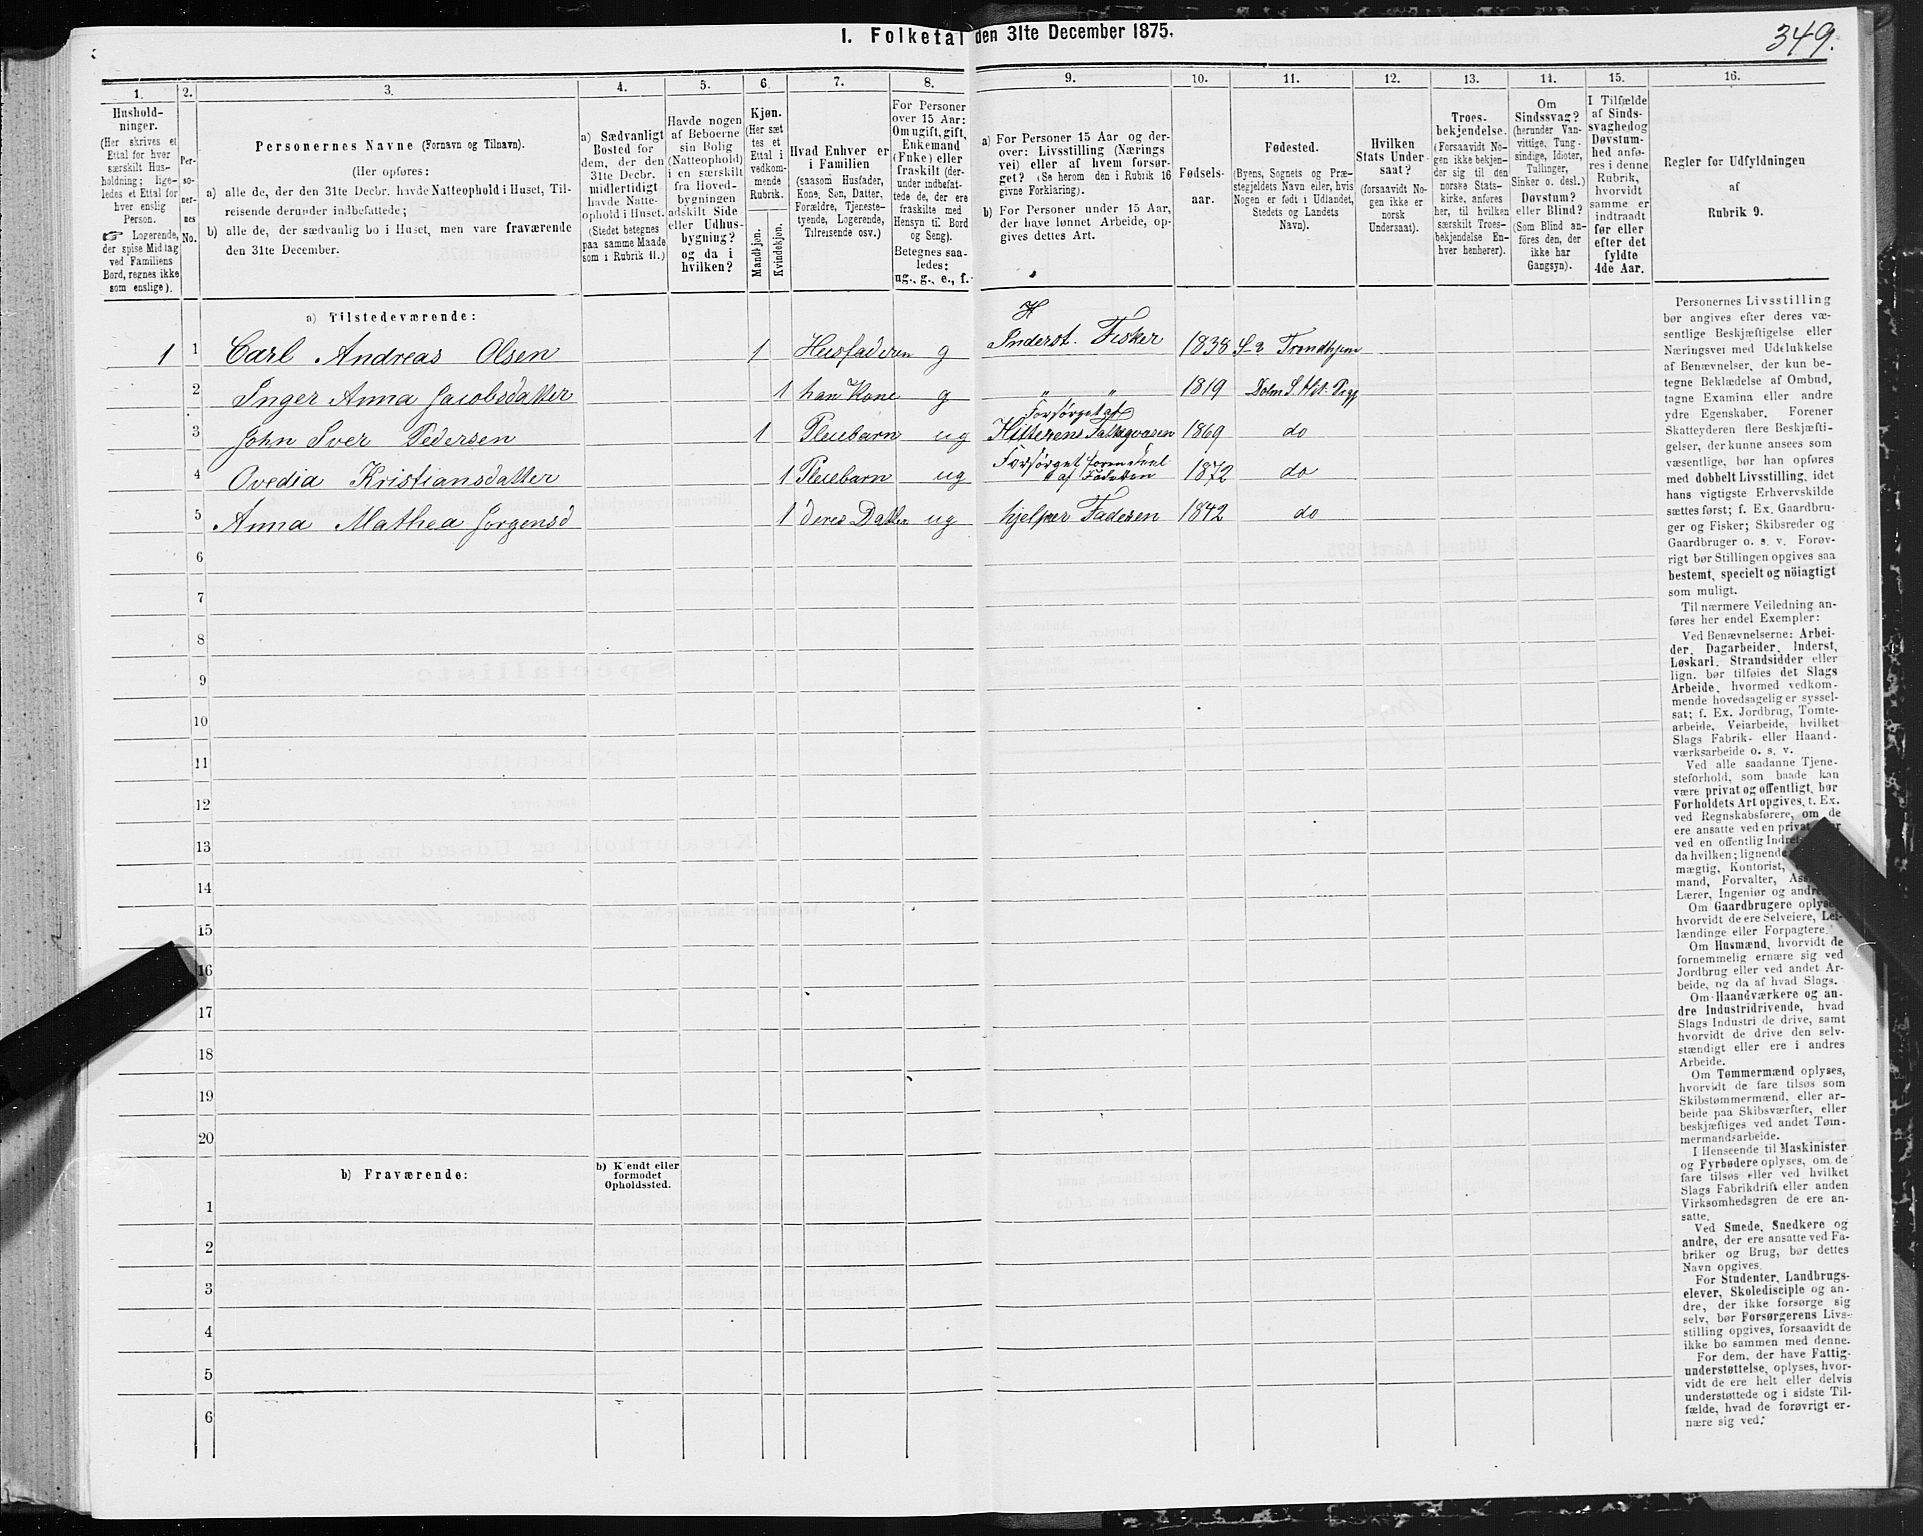 I. Folketal den 31te December 1875.
349.
1.
2.
3.
4.
5.
6.
7.
8.
9.
10.
11.
12.
13.
14.
15.
16.
Hushold-
ninger.
(Her skrives et
Ettal for hver
særskilt Hus-
holdning; lige-
ledes et Ettal for
hver enslig
Person.
☞ Logerende,
der spise Middag
ved Familiens
Bord, regnes ikke
som enslige).
Per-
so-
ner-
nes
No.
Personernes Navne (Fornavn og Tilnavn).
(Her opføres:
a) alle de, der den 31te Decbr. havde Natteophold i Huset, Til-
reisende derunder indbefattede;
b) alle de, der sædvanlig bo i Huset, men vare fraværende
den 31te December.
a) Sædvanligt
Bosted for
dem, der den
31te Decbr.
midlertidigt
havde Natte-
ophold i Huset.
(Stedet betegnes
paa samme Maade
som i Rubrik 11.)
Havde nogen
af Beboerne
sin Bolig
(Natteophold)
i en særskilt
fra Hoved-
bygningen
adskilt Side
eller Udhus-
bygning?
og da i
hvilken?
Kjøn.
(Her sæt
tes et
Ettal i
vedkom-
mende
Rubrik.
Mandkjøn.
Kvindekjøn.
Hvad Enhver er
i Familien
(saasom Husfader,
Kone, Søn, Datter,
Forældre, Tjeneste-
tyende, Logerende,
Tilreisende osv.)
For Personer
over 15 Aar:
Om ugift, gift,
Enkemand
(Enke) eller
fraskilt (der-
under indbefat-
tede de, der ere
fraskilte med
Hensyn til Bord
og Seng).
Betegnes saa-
ledes:
ug., g., e., f.
a) For Personer 15 Aar og der-
over: Livsstilling (Nærings
vei) eller af hvem forsør-
get? (Se herom den i Rubrik 16
givne Forklaring).
b) For Personer under 15 Aar,
der have lønnet Arbeide, op-
gives dettes Art.
Fødsels-
aar.
Fødested.
(Byens, Sognets og Præ-
stegjeldets Navn eller, hvis
Nogen er født i Udlandet,
Stedets og Landets
Navn).
Hvilken
Stats Under-
saat?
(forsaavidt No-
gen ikke er
norsk
Undersaat).
Troes-
bekjendelse.
(Forsaavidt No-
gen ikke bekjen-
der sig til den
norske Stats-
kirke, anføres
her, til hvilken
særskilt Troes-
bekjendelse En-
hver henhører).
Om
Sindssvag?
(herunder Van-
vittige, Tung-
sindige, Idioter,
Tullinger,
Sinker o. desl.)
Døvstum?
eller Blind?
(Som Blind an-
føres den, der
ikke har
Gangsyn).
I Tilfælde
af Sinds-
svaghed og
Døvstum-
hed anfø-
res i denne
Rubrik,
hvorvidt
samme er
indtraadt
før eller
efter det
fyldte
4de Aar.
Regler for Udfyldningen
af
Rubrik 9.
a) Tilstedeværende:
H
1 1 Carl Andreas Olsen 1 Husfaderen g Inderst. Fisker 1838 Trondhjem
2 Inger Anna Jacobsdatter 1 hans Kone g " " 1819 Dolm S. Hit. Pregj
3 John Iver Pedersen 1 Pleiebarn ug Forsørget af Hitterens Fattigvæsen 1869 do
4 Ovedia Kristiansdatter 1 Pleiebarn ug Forsørget af 1872 do
5 Anna Mathea Jørgensd 1 deres Datter ug hjelper Faderen 1842 do
6
7
8
9
10
11
12
13
14
15
16
17
18
19
20
b) Fraværende:
b) Kjendt eller
formodet
Opholdssted.
1
2
3
4
5
6
Personernes Livsstilling
bør angives efter deres væ-
sentlige Beskjæftigelse eller
Næringsvei med Udelukkelse
af Benævnelser, der kun be-
tegne Beklædelse af Ombud,
tagne Examina eller andre
ydre Egenskaber. Forener
Skatteyderen flere Beskjæfti-
gelser, der kunne ansees som
væsentlige, bør han opføres
med dobbelt Livsstilling, idet
hans vigtigste Erhvervskilde
sættes først; f. Ex. Gaardbru-
ger og Fisker; Skibsreder og
Gaardbruger o. s. v. Forøv-
rigt bør Stillingen opgives saa
bestemt, specielt og nöiagtigt
som muligt.
Til nærmere Veiledning an-
føres her endel Exempler:
Ved Benævnelserne: Arbei-
der, Dagarbeider, Inderst,
Løskarl, Strandsidder eller
lign. bør tilføies det Slags
Arbeide, hvormed vedkom-
mende hovedsagelig er syssel-
sat; f. Ex. Jordbrug, Tomte-
arbeide, Veiarbeide, hvilket
Slags Fabrik- eller Haand-
værksarbeide o. s. v.
Ved alle saadanne Tjene-
steforhold, som baade kan
være privat og offentligt, bør
Forholdets Art opgives, t. Ex.
ved Regnskabsførere, om de
ere ansatte ved en privat
ved en offentlig
da hvilken; lignende
mægtig, Kontorist,
mand, Forvalter,
Lærer, Ingeniør og andre.
Om Gaardbrugere oplyses,
hvorvidt de ere Selveiere, Lei-
lændinge eller Forpagtere.
Om Husmænd, hvorvidt de
fornemmelig ernære sig ved
Jordbrug eller ved andet Ar-
beide, og da af hvad Slags.
Om Haandværkere og an-
dre Industridrivende, hvad
Slags Industri de drive, samt
hvorvidt de drive den selv-
stændigt eller ere i andres
Arbeide.
Om Tømmermænd oplyses,
hvorvidt de fare tilsøs som
Skibstømmermænd, eller ar-
beide paa Skibsværfter, eller
beskjæftiges ved andet Tøm-
mermandsarbeide.
I Henseende til Maskinister
og Fyrbødere oplyses, om de
fare tilsøs eller ved hvilket
Slags Fabrikdrift eller anden
Virksomhedsgren de ere an-
satte.
Ved Smede, Snedkere og
andre, der ere ansatte ved Fa-
briker og Brug, bør dettes
Navn opgives.
For Studenter, Landbrugs-
elever, Skoledisciple og an-
dre, der ikke forsørge sig
selv, bør Forsørgerens Livs-
stilling opgives, forsaavidt de
ikke bo sammen med denne.
For dem, der have Fattig-
understøttelse, oplyses, hvor-
vidt de ere helt eller delvis
understøttede og i sidste Til-
fælde, hvad de forøvrigt er-
nære sig ved.